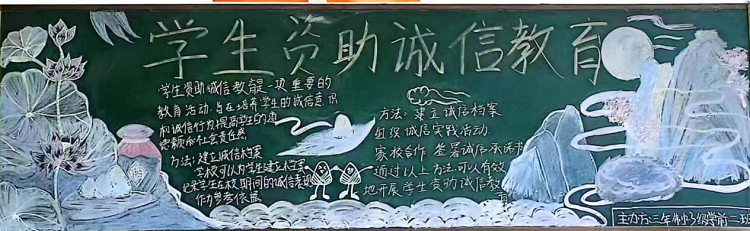 学生资助诚信教育
学生资助诚信教育是一项重要的
教育活动,旨在培养学生的诚信意识
和诚信行为,提高学生的道
德观和社会责任感
方法:建立诚信档案
学校可以为学生建立档案
记录学生在校期间的诚信表现
作为参考依据
方法:建立诚信档案
组织诚信实践活动
家校合作 签署诚信承诺书
通过以上方法,可以有效
地开展学生资助诚信教
育
主办方:三年制 级学前一班